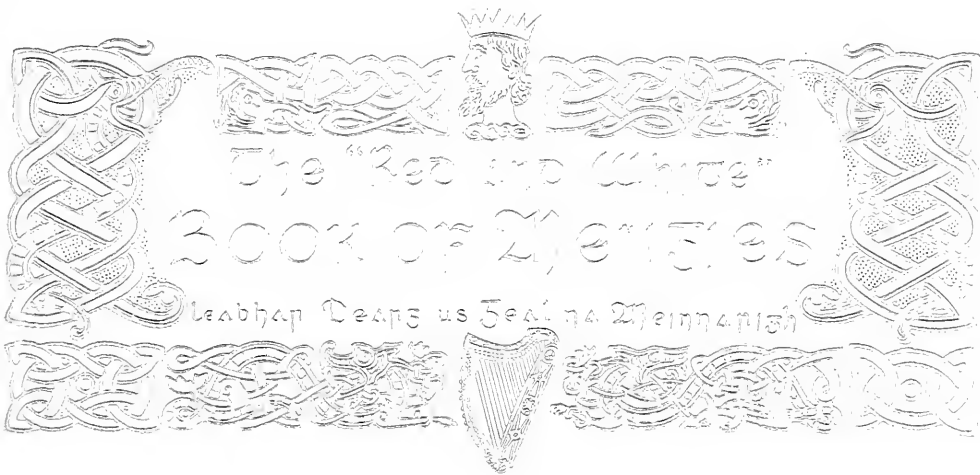 The "Red and White"
Book of Menzies
Leabhar Dearg us Geal na Meinnarigh